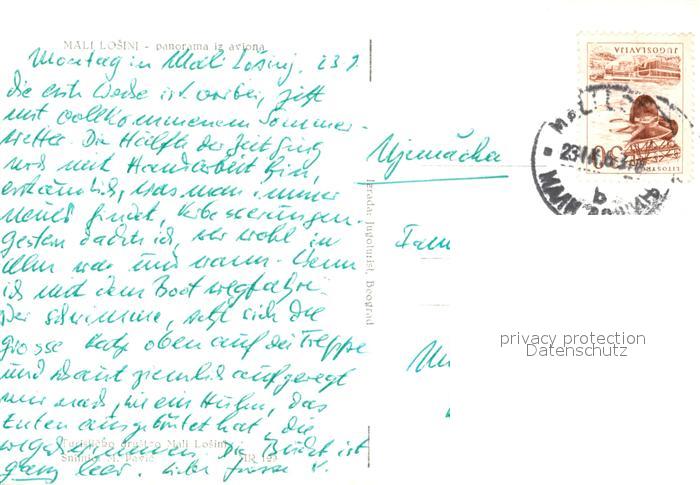 MALI LOŠINJ - panorama iz aviona
Montag in Mali Lošinj, 23.9.
die erste Woche ist vorbei, jetzt
mit vollkommenem Sommer-
wetter. Die Hälfte der Zeit ging
mit Handarbeit hin,
erstaunlich, was man immer
neues findet, Verbesserungen.
Gestern dachte ich, wer wohl in
Ulm war und wann. Wenn
ich mit dem Boot wegfahre
oder schwimme, setzt sich die
grosse Katze oben auf die Treppe
und schaut ziemlich aufgeregt
mir nach, wie ein Huhn, das
Enten ausgebrütet hat, die
wegschwimmen. Die Bucht ist
ganz leer. Liebe Grüsse
Turističko društvo Mali Lošinj
Snimio M. Pavić
Izrada: Jugoturist, Beograd
Njemačka
Fam
JUGOSLAVIJA
30
LITOSTROJ
MALI LOŠINJ
23.IX.6
b
МАЛИ ЛОШИЊ
privacy protection
Datenschutz